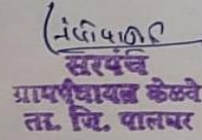 सरपंच
ग्रामपंचायत केळवे
ता. जि. पालघर